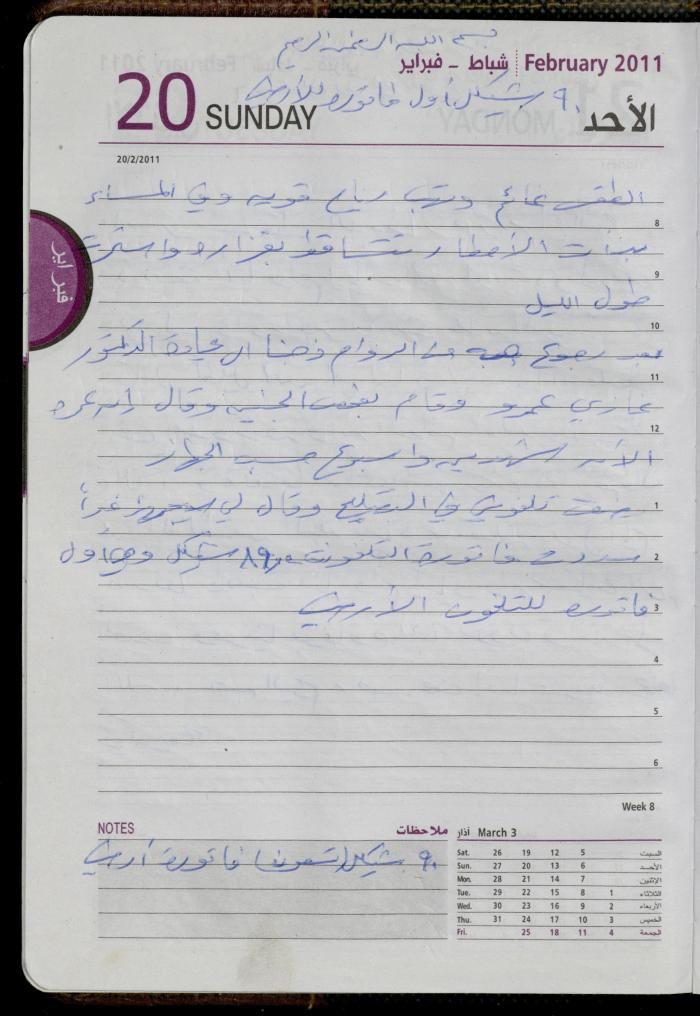 بسم الله الرحمن الرحيم
شباط - فبراير February 2011
20 SUNDAY الأحد
٩٠ شيكل أول فاتورة للأرضي
20/2/2011
الطقس غائم وتهب رياح قوية وفي المساء
8
بدأت الأمطار تتساقط بغزارة واستمرت
9
طول الليل
10
بعد رجوع من الدوام ذهبنا الى عيادة الدكتور
11
غازي عمرو وقام بفحص الجنين وقال إنه عمره
12
الآن شهرين واسبوع حسب الجهاز
1
تلفوني في التصليح وقال لي سيجهز غداً
2
سددت فاتورة التلفون ٨٩ شيكل وهي أول
3
فاتورة للتلفون الأرضي
4
5
6
فبراير
Week 8
NOTES ملاحظات
٩٠ شيكل (تسعون) فاتورة أرضي
March 3 آذار
Sat. 26 19 12 5 السبت
Sun. 27 20 13 6 الأحد
Mon. 28 21 14 7 الاثنين
Tue. 29 22 15 8 1 الثلاثاء
Wed. 30 23 16 9 2 الأربعاء
Thu. 31 24 17 10 3 الخميس
Fri. 25 18 11 4 الجمعة